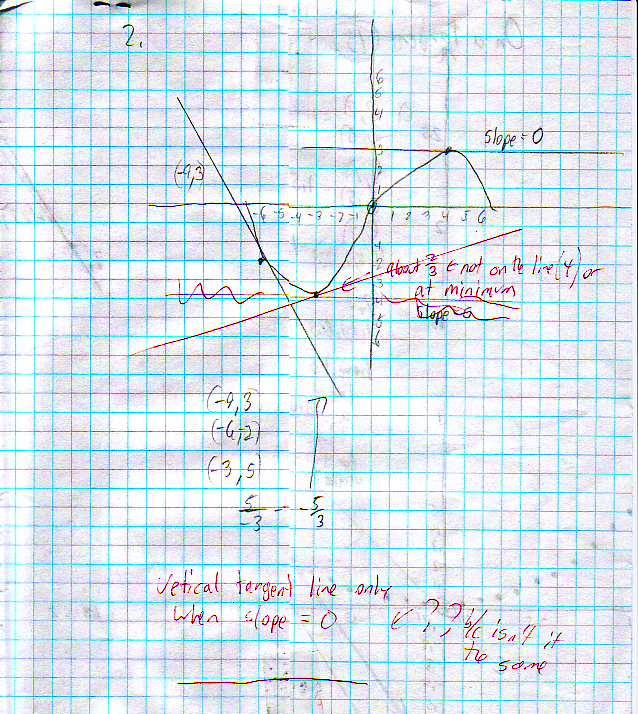 2.
6
5
4
slope = 0
3
2
1
(-9,3)
-6 -5 -4 -3 -2 -1 1 2 3 4 5 6
about 2/3 ← not on the line (4) or
at minimum
slope = 0
(-9,3)
(-6,-2)
(-3,5)
5/-3 - -5/3
Vetical tangent line only
when slope = 0 ← ? ? b/c isn't it
to same